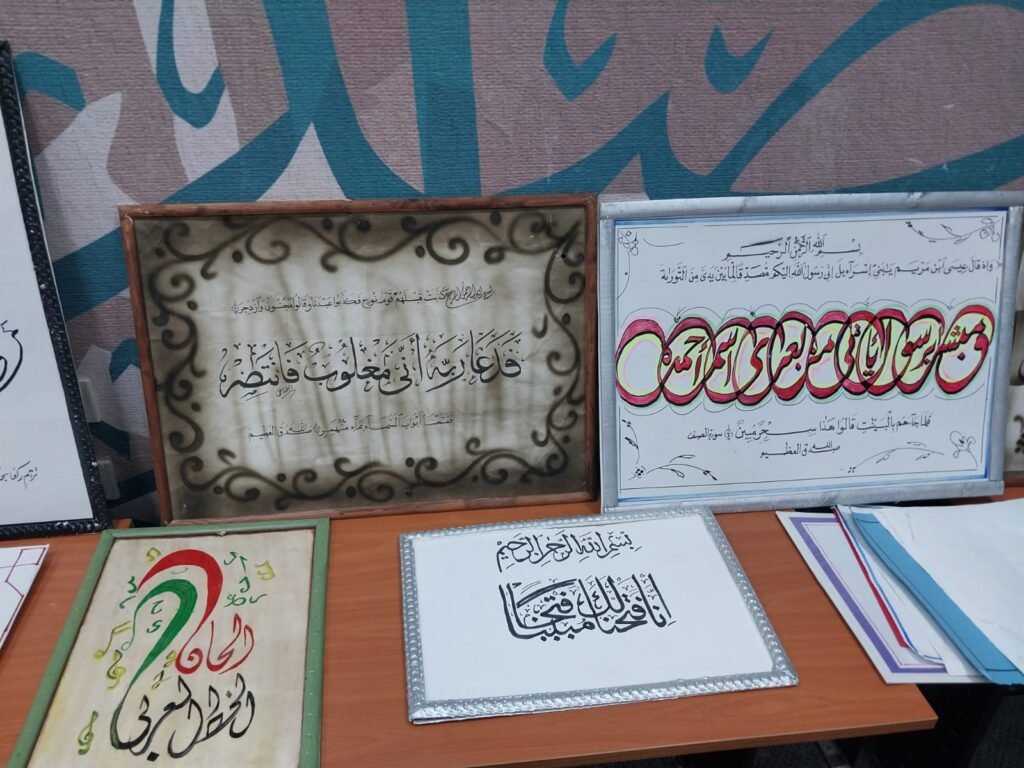 بسم الله الرحمن الرحيم كذبت قبلهم قوم نوح فكذبوا عبدنا وقالوا مجنون وازدجر
فَدَعَا رَبَّهُ أَنِّي مَغْلُوبٌ فَانتَصِرْ
ففتحنا أبواب السماء بماء منهمر صدق الله العظيم
بسم الله الرحمن الرحيم
وإذ قال عيسى ابن مريم يا بني إسرائيل إني رسول الله إليكم مصدقا لما بين يدي من التوراة
ومبشرا برسول يأتي من بعدي اسمه أحمد
فلما جاءهم بالبينات قالوا هذا سحر مبين سورة الصف
صدق الله العظيم
ألحان
الخط العربي
بسم الله الرحمن الرحيم
إنا فتحنا لك فتحا مبينا